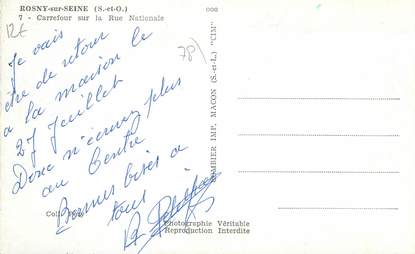 ROSNY-sur-SEINE (S.-et-O.)
7 - Carrefour sur la Rue Nationale
12€
78
Je vais
être de retour
a la maison le
27 Juillet
Donc n'écrivez plus
au Centre
Bonnes bises a
tous
COMBIER IMP. MACON (S.-et-L.) "CIM"
Photographie Véritable
Reproduction Interdite